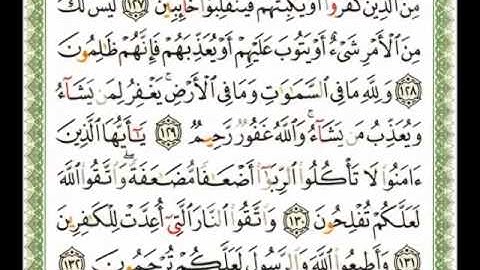 مِنَ ٱلَّذِينَ كَفَرُوٓا۟ أَوۡ يَكۡبِتَهُمۡ فَيَنقَلِبُوا۟ خَآئِبِينَ ١٢٧ لَيۡسَ لَكَ
مِنَ ٱلۡأَمۡرِ شَىۡءٌ أَوۡ يَتُوبَ عَلَيۡهِمۡ أَوۡ يُعَذِّبَهُمۡ فَإِنَّهُمۡ ظَٰلِمُونَ
١٢٨ وَلِلَّهِ مَا فِى ٱلسَّمَٰوَٰتِ وَمَا فِى ٱلۡأَرۡضِۚ يَغۡفِرُ لِمَن يَشَآءُ
وَيُعَذِّبُ مَن يَشَآءُۚ وَٱللَّهُ غَفُورٌ رَّحِيمٌ ١٢٩ يَٰٓأَيُّهَا ٱلَّذِينَ
ءَامَنُوا۟ لَا تَأۡكُلُوا۟ ٱلرِّبَوٰٓا۟ أَضۡعَٰفًا مُّضَٰعَفَةًۖ وَٱتَّقُوا۟ ٱللَّهَ
لَعَلَّكُمۡ تُفۡلِحُونَ ١٣٠ وَٱتَّقُوا۟ ٱلنَّارَ ٱلَّتِىٓ أُعِدَّتۡ لِلۡكَٰفِرِينَ
١٣١ وَأَطِيعُوا۟ ٱللَّهَ وَٱلرَّسُولَ لَعَلَّكُمۡ تُرۡحَمُونَ ١٣٢